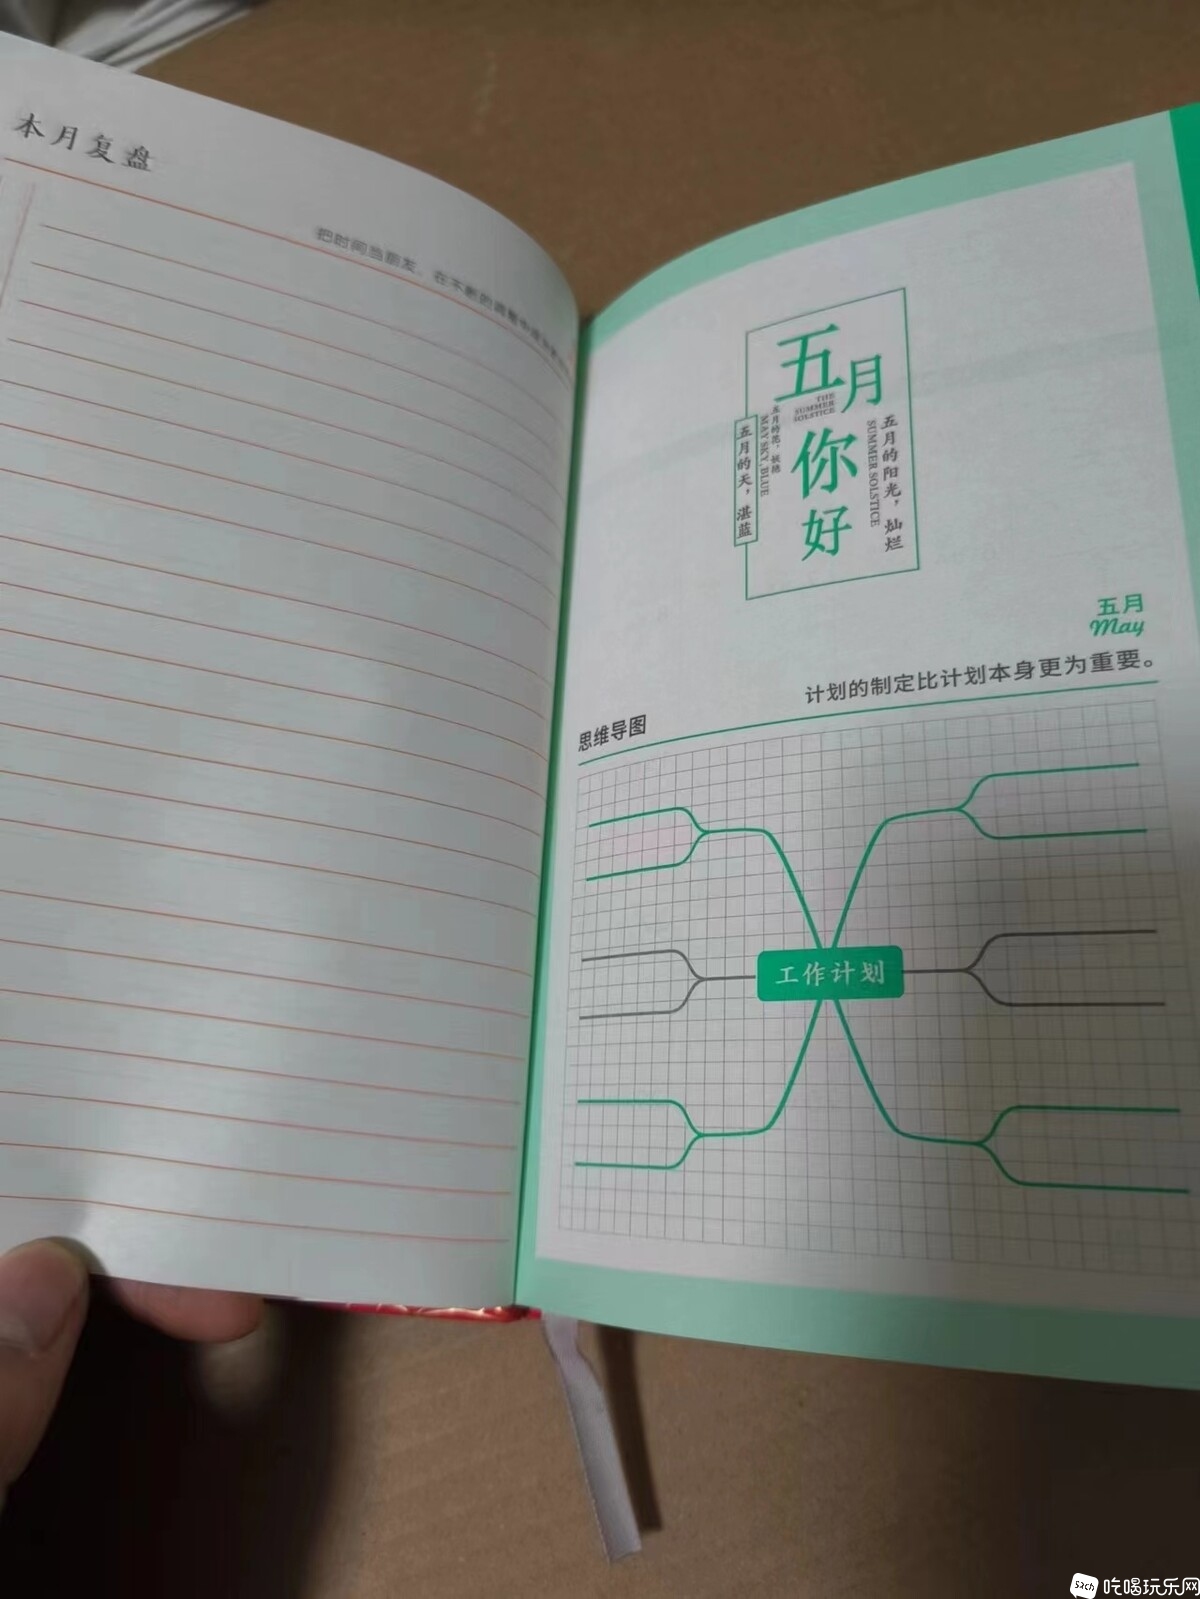 本月复盘
把时间当朋友，在不断的调整中
五月
THE
SUMMER
SOLSTICE
你好
五月的花，
MAY SKY, BLUE
五月的天，湛蓝
五月的阳光，灿烂
SUMMER SOLSTICE
五月
May
计划的制定比计划本身更为重要。
思维导图
工作计划
吃喝玩乐网